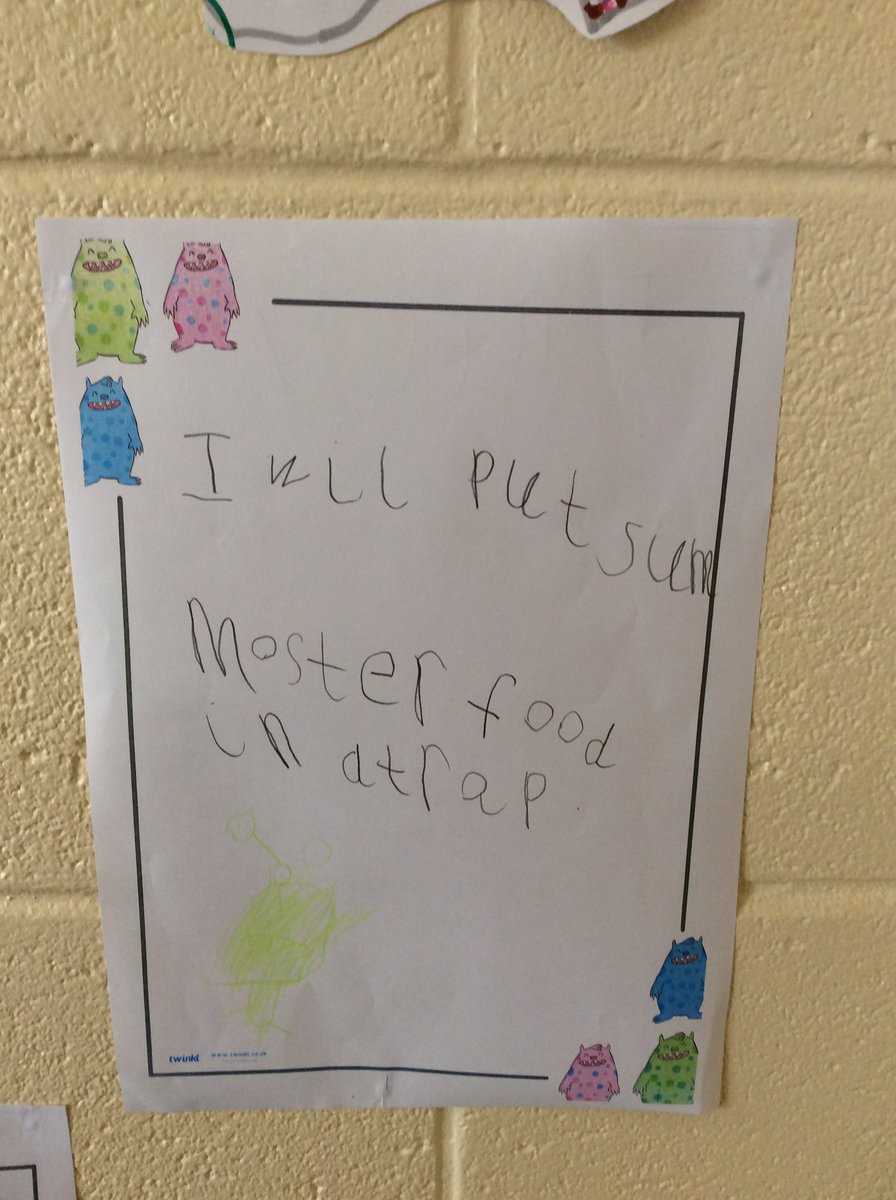 I will put sum
Moster food
in atrap.
twinkl www.twinkl.co.uk